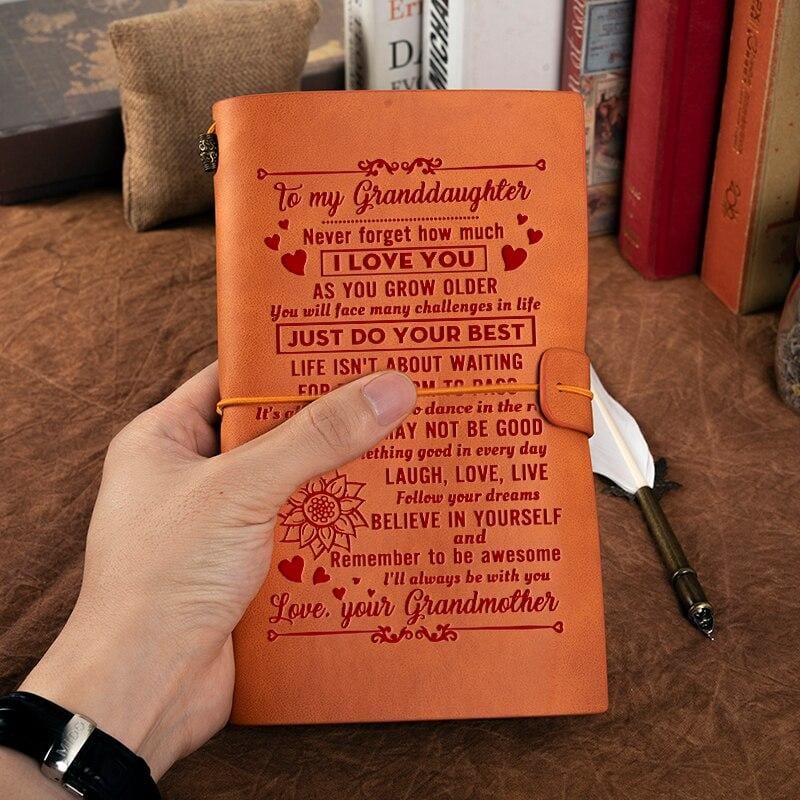 To my Granddaughter
Never forget how much
I LOVE YOU
AS YOU GROW OLDER
You will face many challenges in life
JUST DO YOUR BEST
LIFE ISN'T ABOUT WAITING
FOR TO PASS
It's dance in the
MAY NOT BE GOOD
good in every day
LAUGH, LOVE, LIVE
Follow your dreams
BELIEVE IN YOURSELF
and
Remember to be awesome
I'll always be with you
Love, your Grandmother